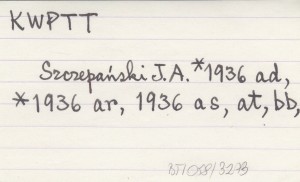 KWPTT
Szczepański J.A. *1936 ad,
*1936 ar, 1936 as, at, bb,